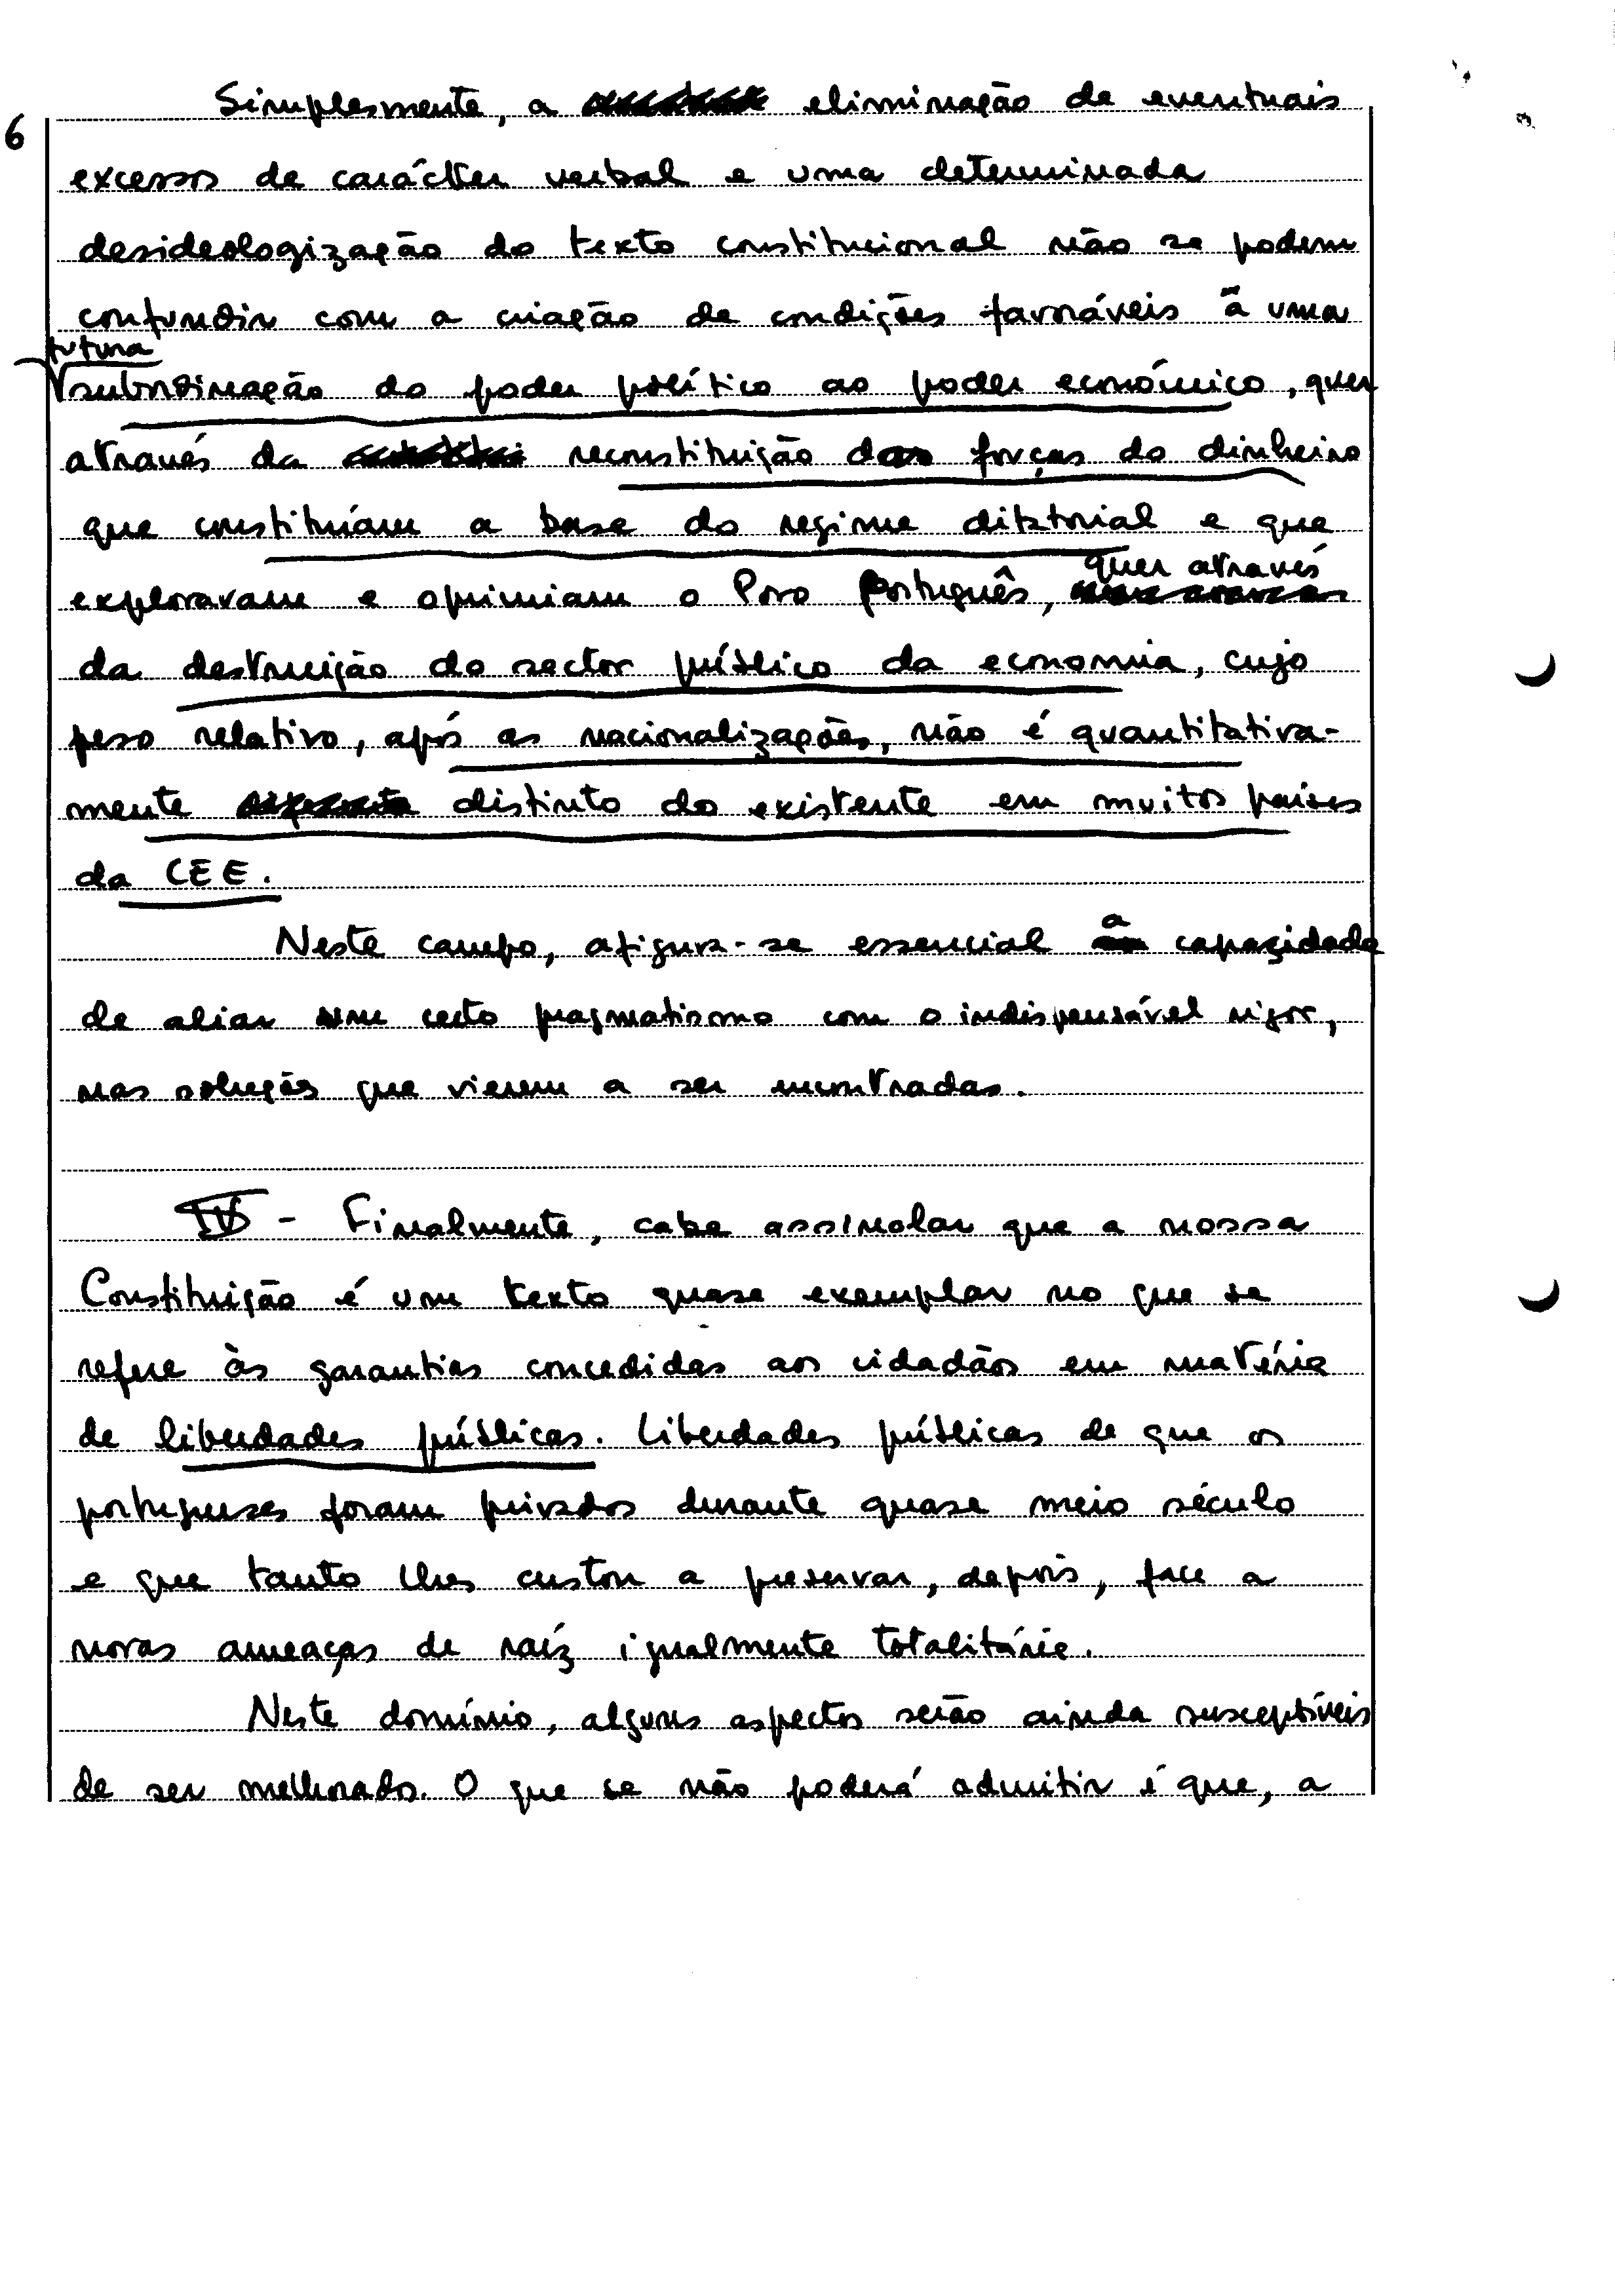 6
Simplesmente, a eliminação de eventuais
excessos de carácter verbal e uma determinada
desideologização do texto constitucional não se podem
confundir com a criação de condições favoráveis a uma
futura
subordinação do poder político ao poder económico, quer
através da reconstituição das forças do dinheiro
que constituíam a base do regime ditatorial e que
quer através
exploravam e oprimiam o Povo Português,
da destruição do sector público da economia, cujo
peso relativo, após as nacionalizações, não é quantitativa-
mente distinto do existente em muitos países
da CEE.
Neste campo, afigura-se essencial a capacidade
de aliar um certo pragmatismo com o indispensável rigor,
nas soluções que vierem a ser encontradas.
IV - Finalmente, cabe assinalar que a nossa
Constituição é um texto quase exemplar no que se
refere às garantias concedidas aos cidadãos em matéria
de liberdades públicas. Liberdades públicas de que os
portugueses foram privados durante quase meio século
e que tanto lhes custou a preservar, depois, face a
novas ameaças de raíz igualmente totalitária.
Neste domínio, alguns aspectos serão ainda susceptíveis
de ser melhorados. O que se não poderá admitir é que, a